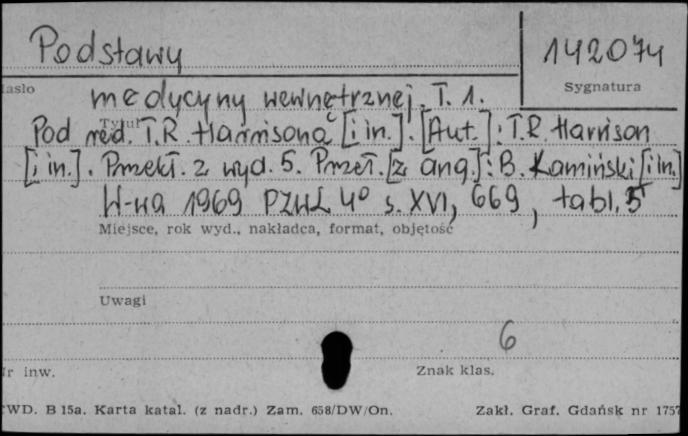 Podstawy
142074
asło
Sygnatura
medycyny wewnętrznej. T. 1.
Tytuł
Pod red. T.R. Harrisona [i in.]. [Aut.]: T.R. Harrison
[i in.]. Przekł. z wyd. 5. Przeł. [z ang.]: B. Kamiński [i in.]
W-wa 1969 PZWL 4° s. XVI, 669, tabl. 5
Miejsce, rok wyd., nakładca, format, objętość
Uwagi
6
r inw.
Znak klas.
WD. B 15a. Karta katal. (z nadr.) Zam. 658/DW/On.
Zakł. Graf. Gdańsk nr 1757